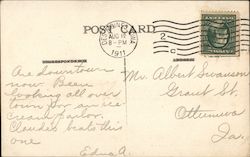 POST CARD
AUG 10
8-PM
1911
2
CORRESPONDENCE
Are downtown
now. Been
looking all over
town for an ice
cream parlor.
Claudes beats this
one
Edna A.
Mr. Albert Swanson
Grant St.
Ottumwa
Ia.